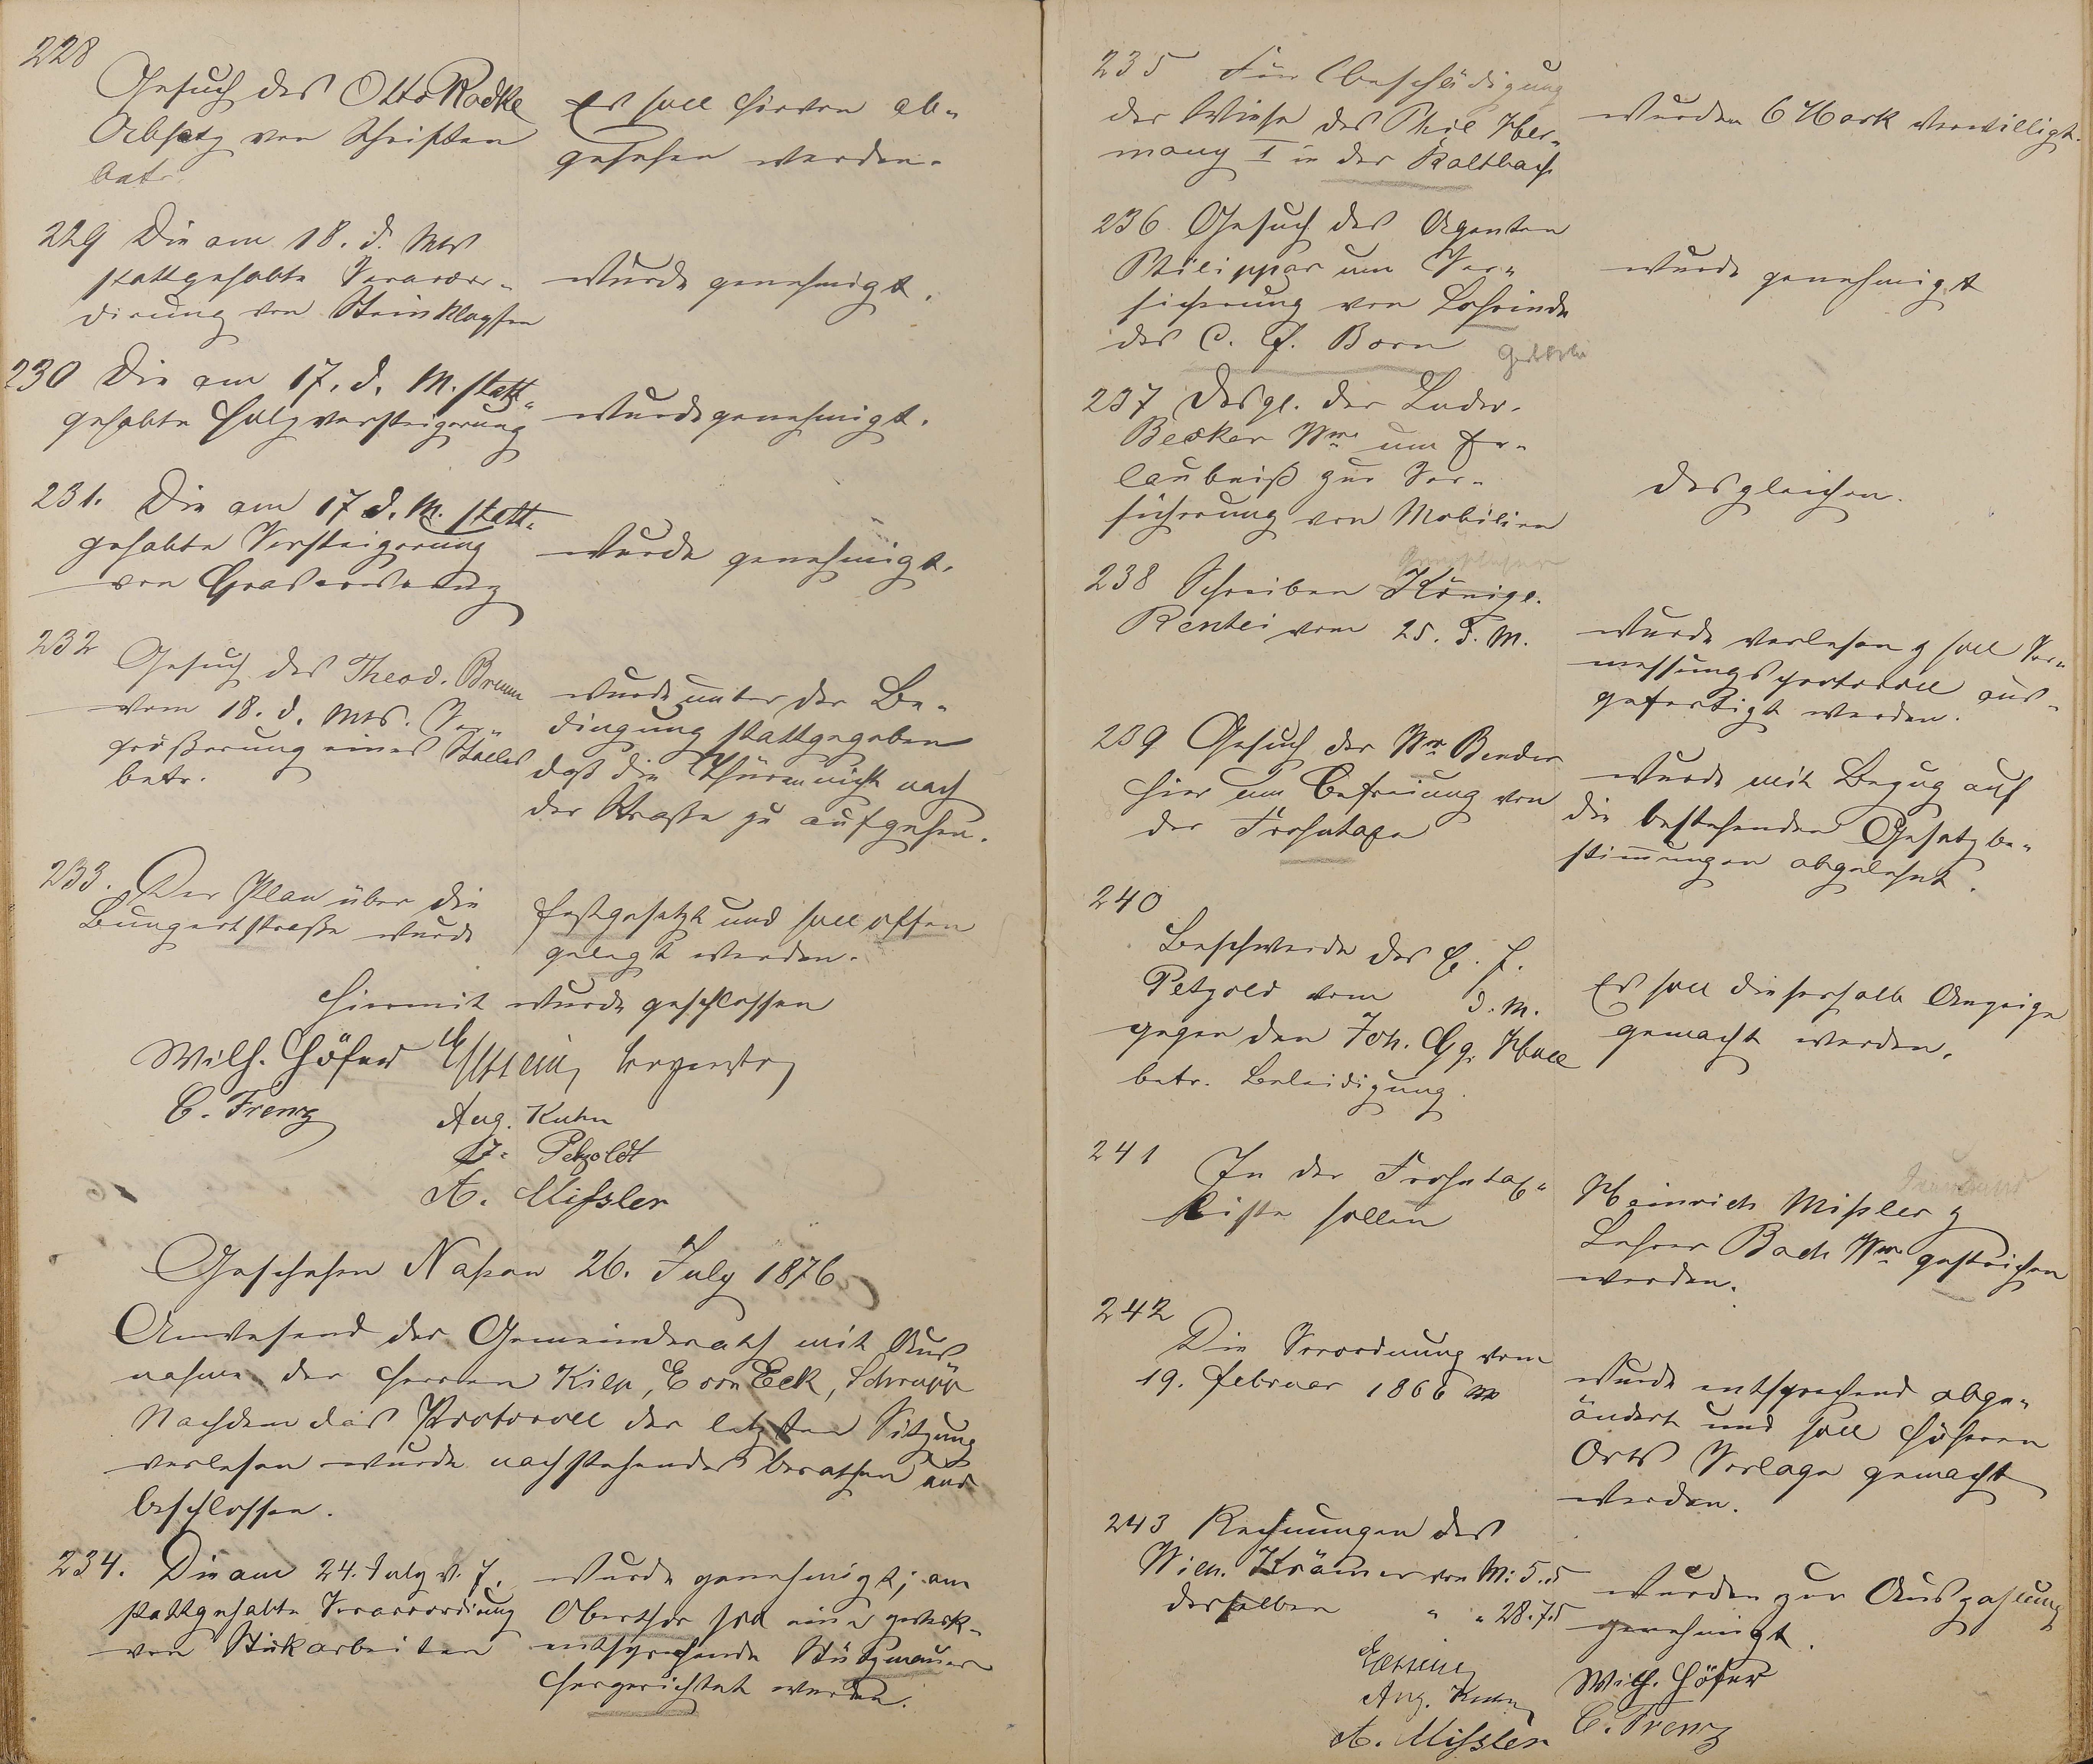 228
Gesuch des Otto Radtke
Absatz von Schriften
betr.
Es soll hiervon ab-
gesehen werden.
229 Die am 18. d. Mts
stattgehabte Veraccor-
dirung von Steinklopfen
wurde genehmigt.
230 Die am 17. d. M. statt-
gehabte Holzversteigerung
wurde genehmigt.
231. Die am 17 d. M. statt-
gehabte Versteigerung
von Graserwuchs
wurde genehmigt.
232
Gesuch des Theod. Bruun
vom 18. d. Mts. Ver-
größerung eines Stalles
betr.
wurde unter der Be-
dingung stattgegeben
daß die Thüren nicht nach
der Straße zu aufgehen.
233. Der Plan über die
Bungertstraße wurde
festgesetzt und soll offen
gelegt werden.
Hiermit wurde geschlossen
Wilh. Höfer
C. Frenz
Aug. Kuhn
J. Petzoldt
A. Mißler
Geschehen Naßau 26. July 1876
Anwesend der Gemeinderath mit Aus
nahme der Herren Kilp, Born Eck, Schrupp
Nachdem das Protocoll der letzten Sitzung
verlesen wurde nachstehendes berathen und
beschlossen.
234. Die am 24. July v. J.
stattgehabte Veraccordirung
von Stückarbeiten
wurde genehmigt; am
Oberthor soll eine zweck-
entsprechende Stützmauer
hergerichtet werden.
235 Für Beschädigung
der Wiese des Phil Her-
many I in der Kaltbach
wurden 6 Mark verwilligt.
236 Gesuch des Agenten
Philippar um Ver-
sicherung von Lohrinde
des C. F. Born
wurde genehmigt
237 Desgl. der Ludw.
Becker Wwe um Er-
laubniß zur Ver-
sicherung von Mobilien
desgleichen.
238 Schreiben Königl.
Rentei vom 25. d. M.
wurde verlesen & soll Ver-
messungsprotocoll aus-
gefertigt werden.
239 Gesuch der Wwe Bender
hier um Befreiung von
der Frohntaxe
wurde mit Bezug auf
die bestehenden Gesetzbe-
stimmungen abgelehnt.
240
Beschwerde des C. F.
Petzold vom d. M.
gegen den Joh. Gg.
betr. Beleidigung.
Es soll dieserhalb Anzeige
gemacht werden.
241
In der Frohntax-
liste sollen
Heinrich Mißler &
Lehrer Bach Wwe gestrichen
werden.
242
Die Verordnung vom
19. Februar 1866
wurde entsprechend abge-
ändert und soll höheren
Orts Vorlage gemacht
werden.
243 Rechnungen des
Wilh. Krämer von M: 5.5
derselben " " 28.75
wurden zur Auszahlung
genehmigt.
Aug. Kuhn
A. Mißler
Wilh. Höfer
C. Frenz